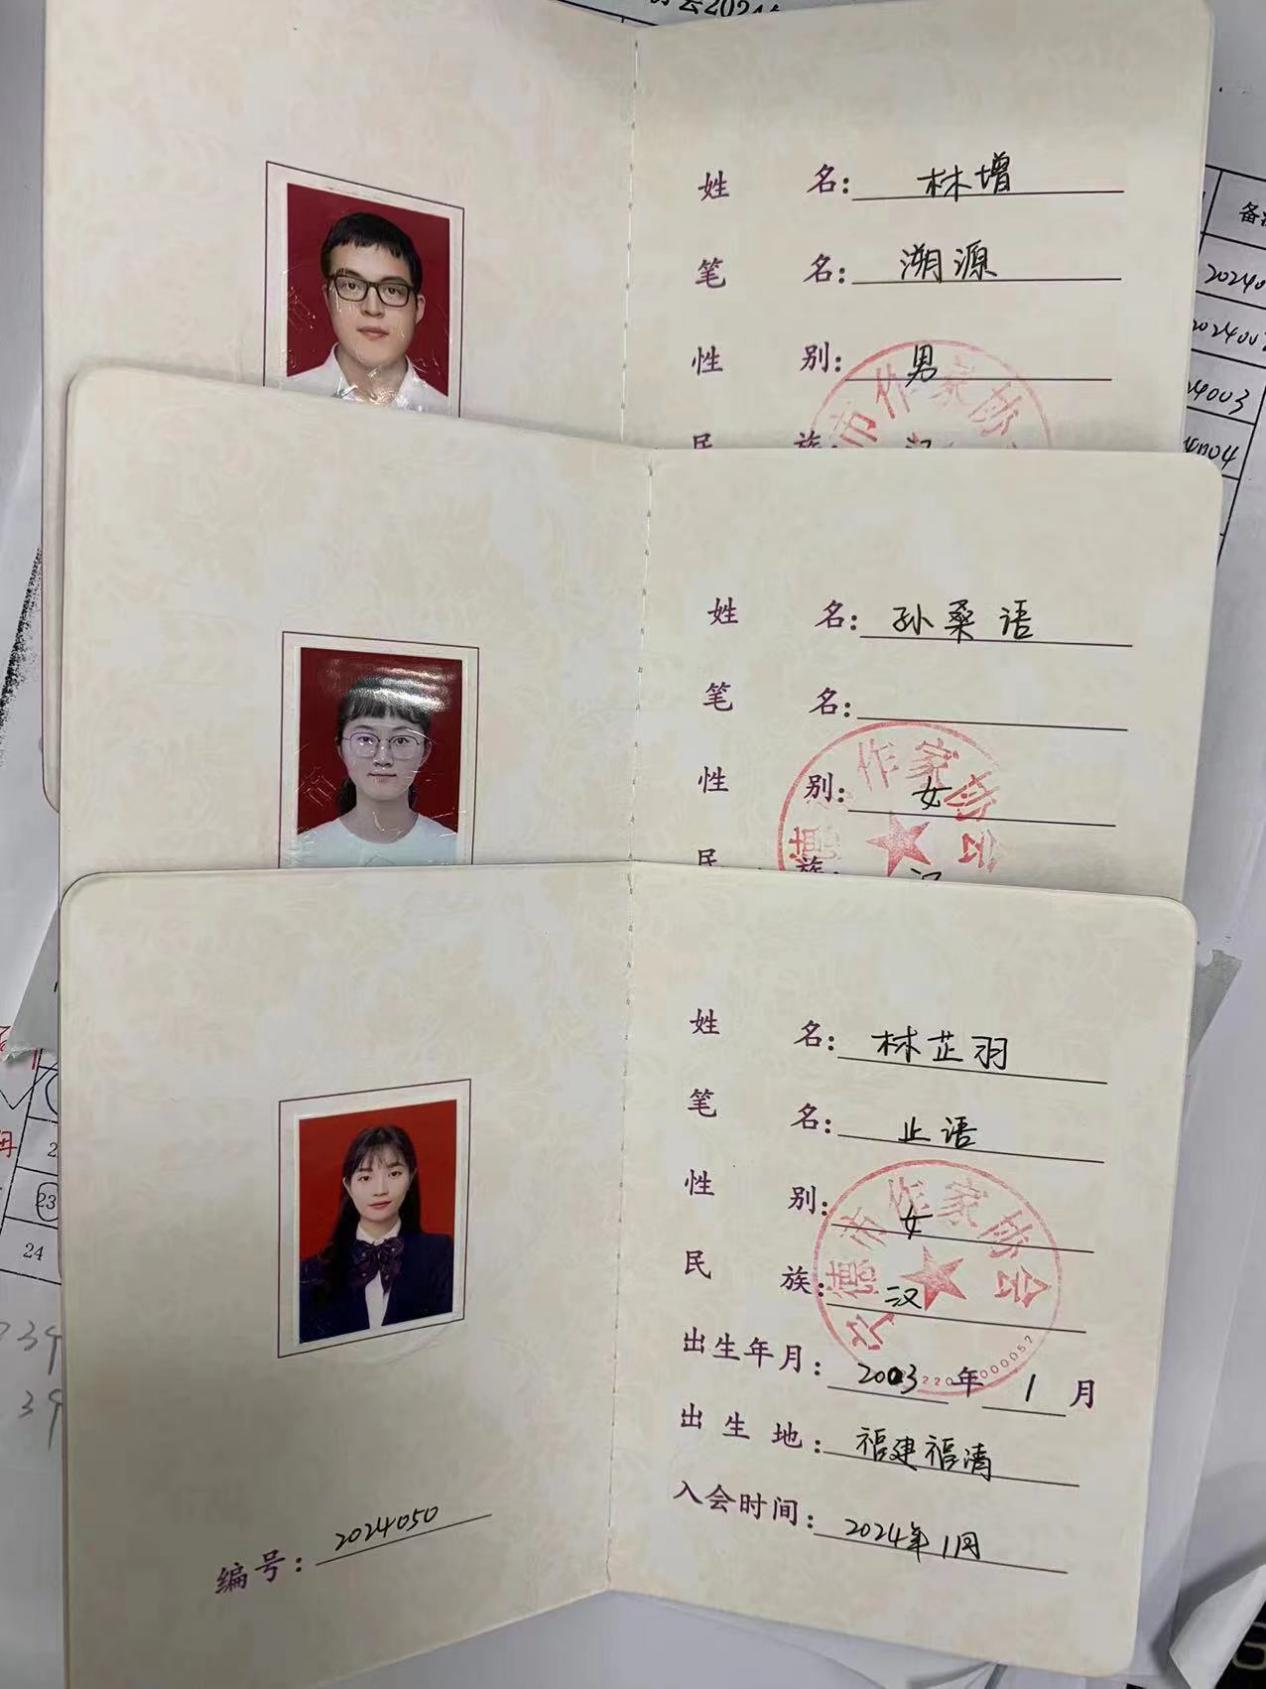 会2024年
姓名：林增
笔名：溯源
性别：男
民族：汉
市作家协
备注
2024003
2024004
姓名：孙桑语
笔名：
性别：女
民族：汉
德 作家协会
姓名：林芷羽
笔名：止语
性别：女
民族：汉
出生年月：2003年1月
出生地：福建福清
入会时间：2024年1月
宁德市作家协会
编号：2024050
23
24